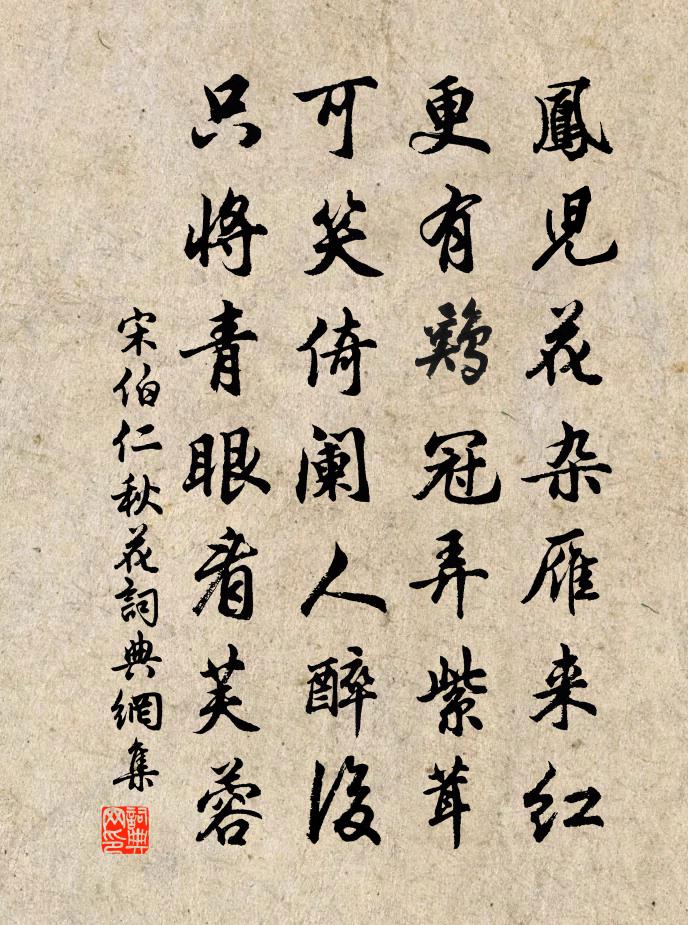 鳳児花杂雁来红
更有鷄冠弄紫茸
可笑倚阑人醉後
只将青眼看芙蓉
宋伯仁秋花詞典網集
詞典
网印